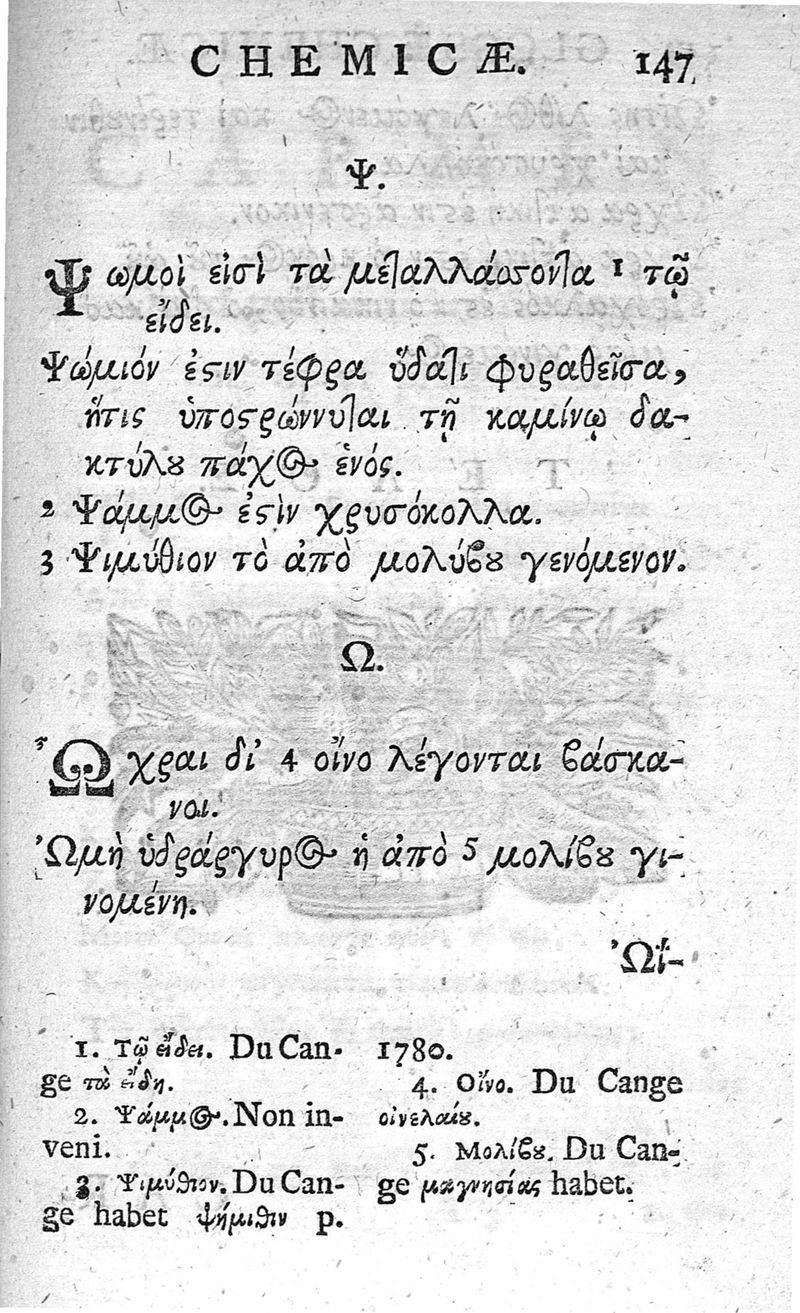 CHEMICÆ. 147
Ψ.
Ψωμοὶ εἰσὶ τὰ μεταλλάσσοντα 1 τῷ
εἴδει.
Ψώμιόν ἐϛιν τέφρα ὕδατι φυραθεῖσα,
ἥτις ὑποϛρώννυται τῇ καμίνῳ δα-
κτύλȣ πάχος ἑνός.
2 Ψάμμος ἐϛὶν χρυσόκολλα.
3 Ψιμύθιον τὸ ἀπὸ μολύβȣ γενόμενον.
Ω.
Ὦχραι δι' 4 οἶνο λέγονται βάσκα-
νοι.
Ὠμὴ ὑδράργυρος ἡ ἀπὸ 5 μολίβȣ γι-
νομένη.
Ὠΐ-
1. Τῷ εἴδει. Du Can-
ge τὰ εἴδη.
2. Ψάμμος. Non in-
veni.
3. Ψιμύθιον. Du Can-
ge habet ψήμιθιν p.
1780.
4. Οἶνο. Du Cange
οἰνελαίȣ.
5. Μολίβȣ. Du Can-
ge μαγνησίας habet.